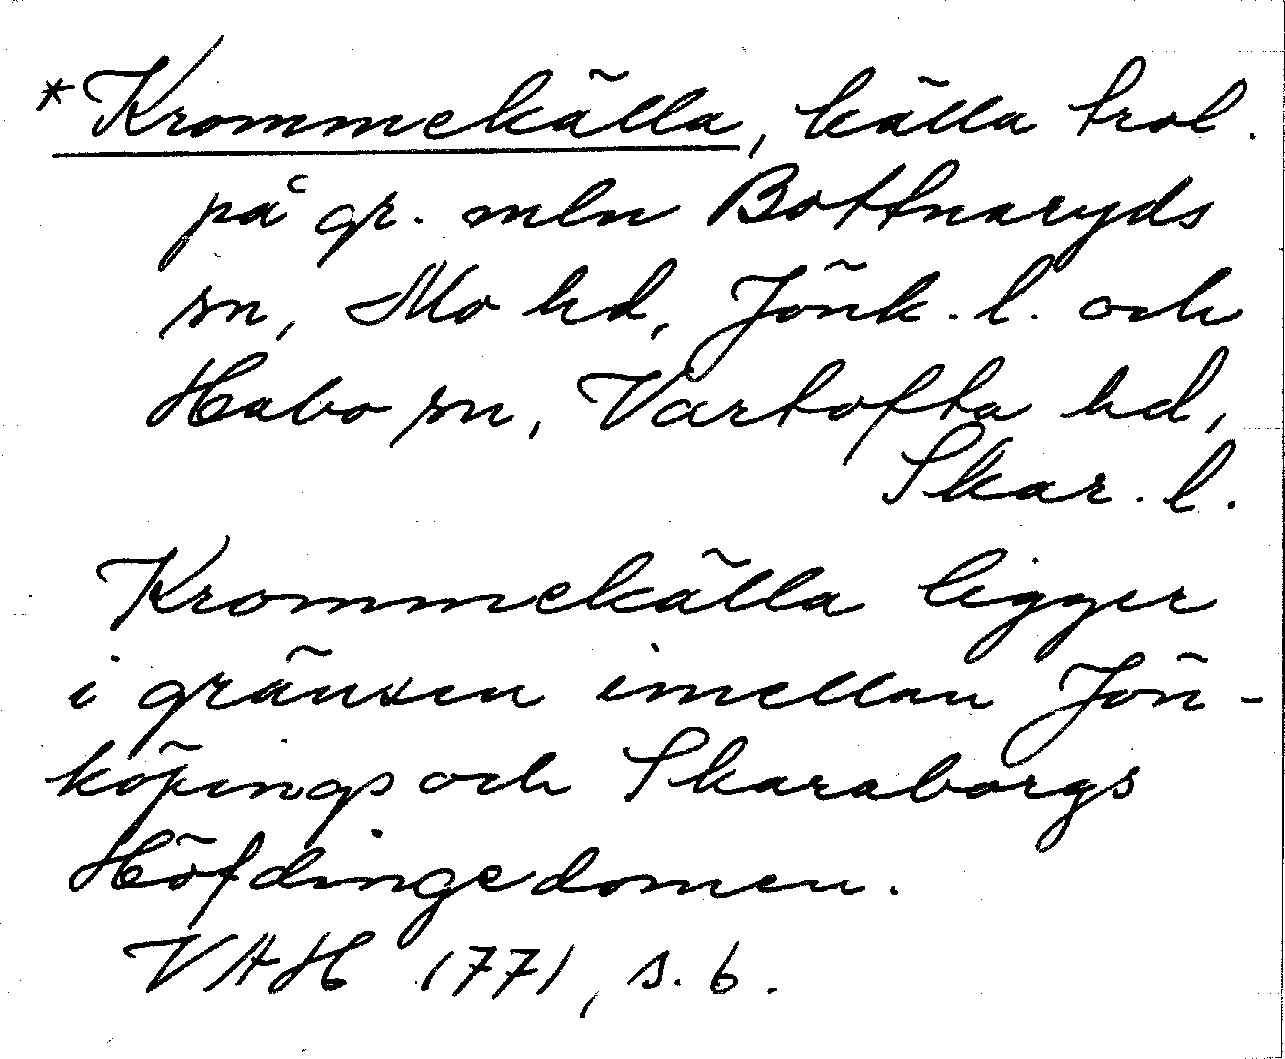 *Krommekälla, källa trol.
på gr. mln Bottnaryds
sn, Mo hd, Jönk. l. och
Habo sn, Vartofta hd,
Skar. l.
Krommekälla ligger
i gränsen imellan Jön-
köpings och Skaraborgs
Höfdingedomen.
VAH 1771, s. 6.